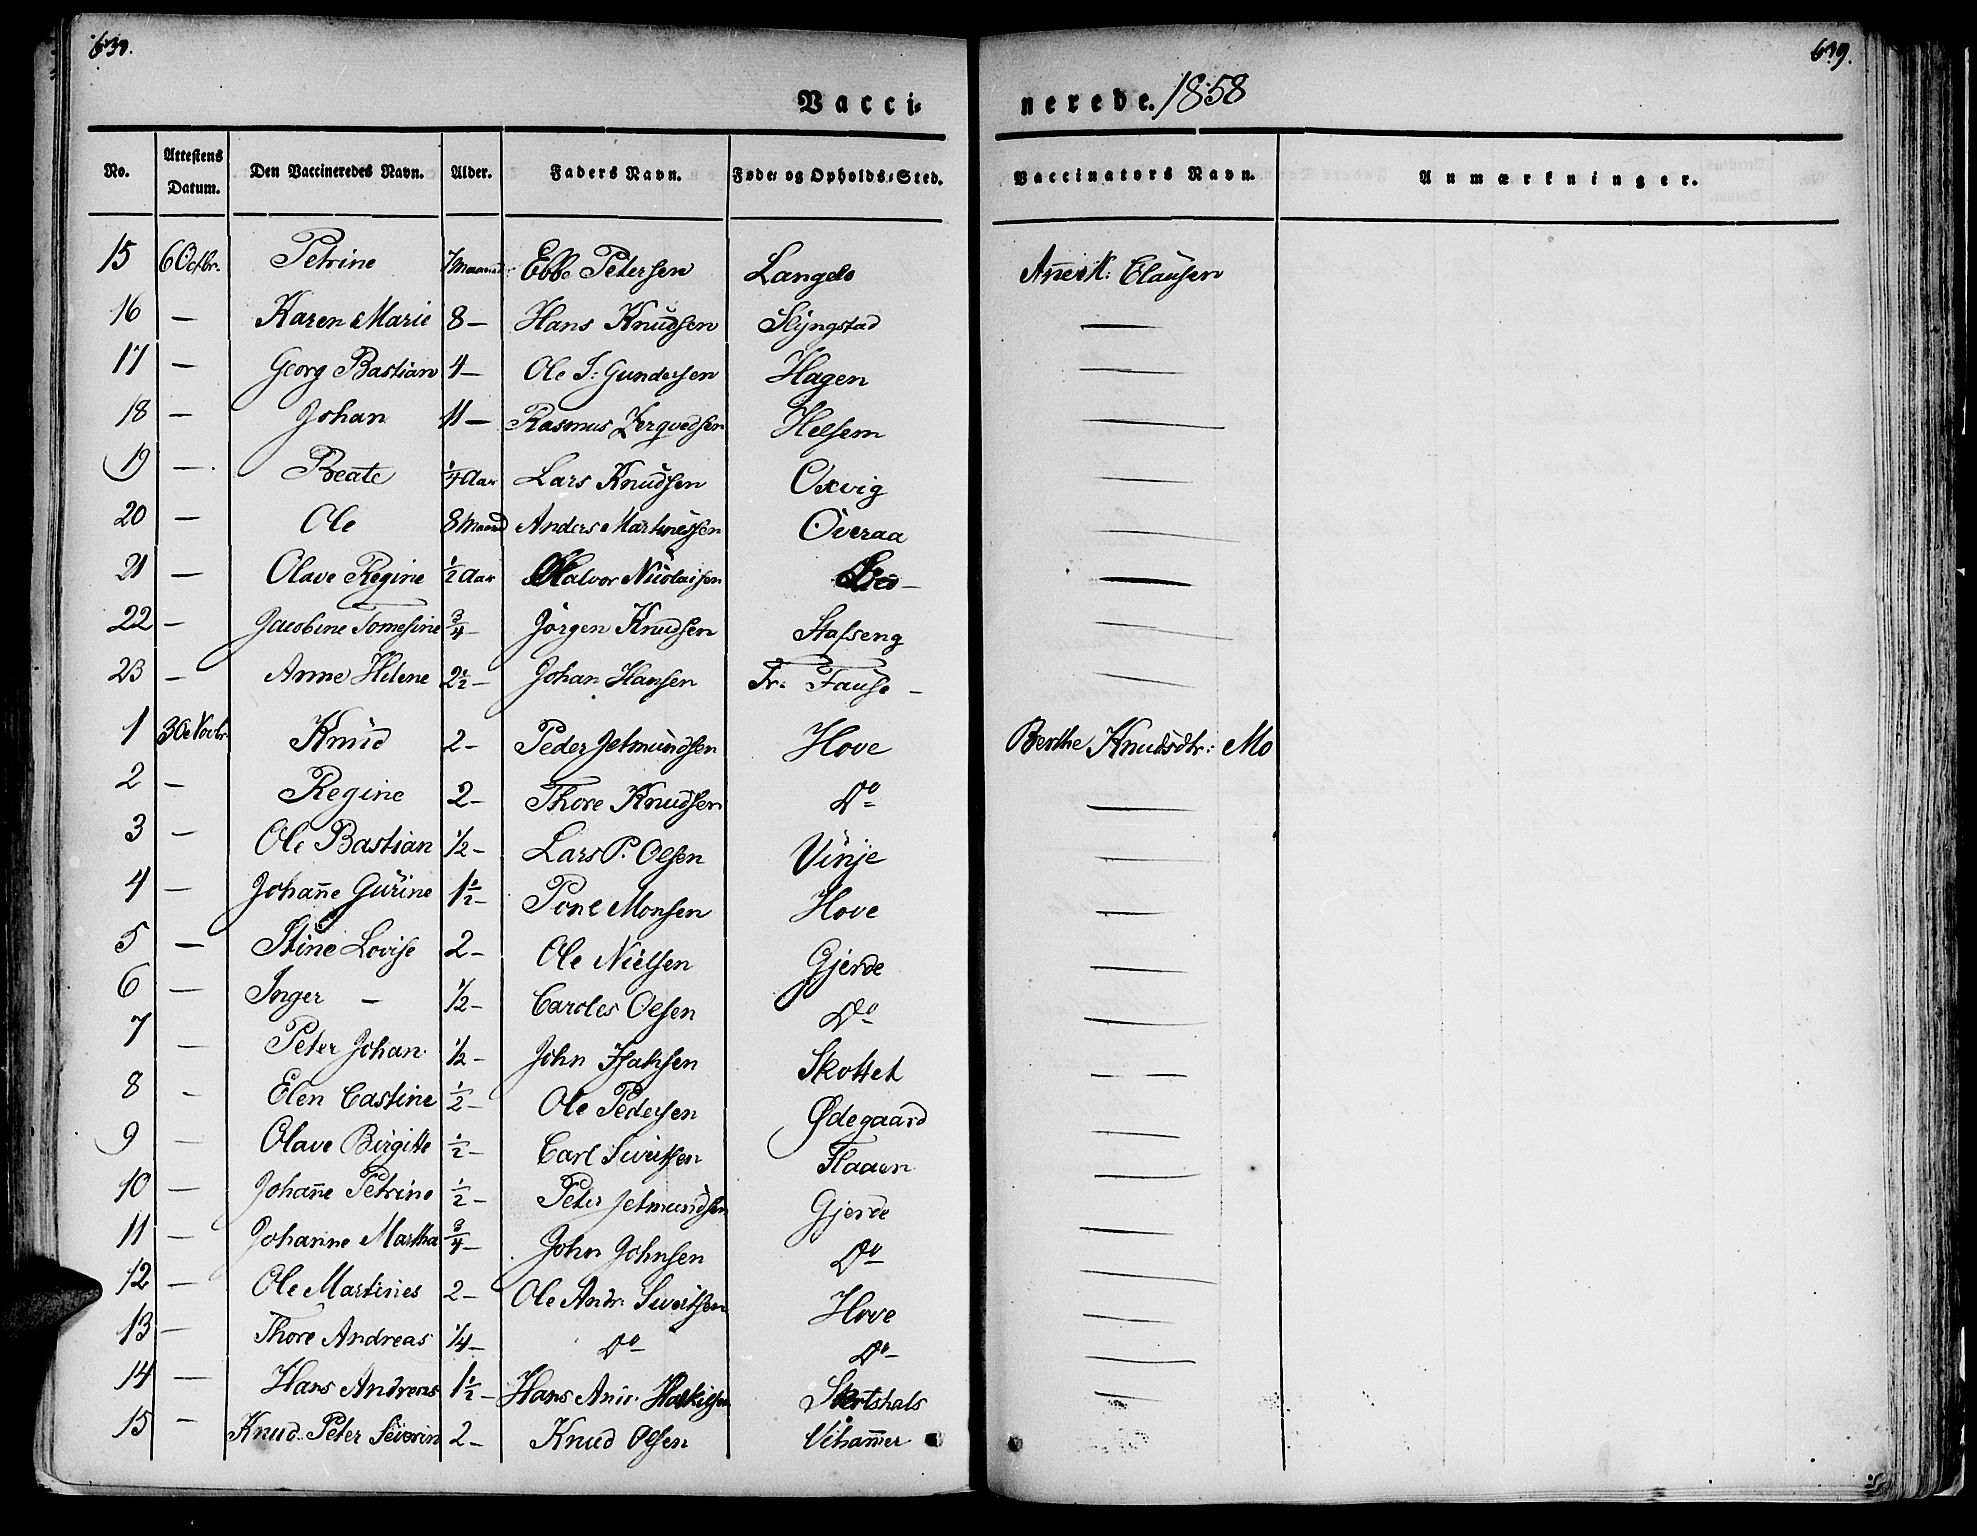 639.
Vacci-
nerede. 1858
No. Attestens Datum. Den Vaccineredes Navn. Alder. Faders Navn. Føde- og Opholds-Sted. Vaccinators Navn. Anmærkninger.
15 6 Octbr. Petrine 7 Ebbe Petersen Langelo Clausen
16 — Karen Marie 8 — Hans Knudsen Slyngstad —
17 — Georg Bastian 4 — Ole I: Gundersen Hagen —
18 — Johan 11 — Rasmus Helsem —
19 — Beate 1/4 Aar Lars Knudsen Oxvig —
20 — Ole 8 Maaned Anders Martinussen Överaa —
21 — Olave Regine 1/2 Aar Halvor Nicolaisen —
22 — Jacobine Tomesine 3/4 — Jörgen Knudsen Stafseng —
23 — Anne Helene 2 1/2 — Johan Hansen Fr: —
1 30 Novbr Knud 2 — Peder Jetmundsen Hove Berthe Knudsdtr: Mo
2 — Regine 2 — Thore Knudsen Do —
3 — Ole Bastian 1/2 — Lars P. Olsen Vinje —
4 — Johañe Gurine 1 1/2 — Pone Monsen Hove —
5 — Stine Lovise 2 — Ole Nielsen Gjerde —
6 — Inger — 1/2 — Caroles Olsen Do —
7 — Peter Johan 1/2 — John Skottet —
8 — Elen Castine 1/2 — Ole Pedersen Ødegaard —
9 — Olave Birgitte 1/2 — Carl Sivertsen Flaaen —
10 — Johañe Petrine 1/2 — Peter Jetmundsen Gjerde —
11 — Johanne Martha 3/4 — John Johnsen Do —
12 — Ole Martines 2 — Ole Andr: Sivertsen Hove —
13 — Thore Andreas 1/4 — Do Do —
14 — Hans Andreas 1 1/2 — Hans —
15 — Knud Peter Severin 2 — Knud Olsen Viham̃er